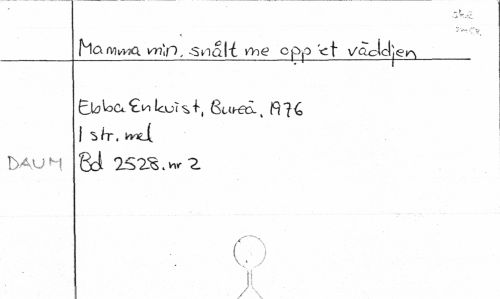 Mamma min, snålt me opp'et väddjen
Ebba Enkvist, Bureå, 1976
1 str. mel
DAUM Bd 2528. nr 2